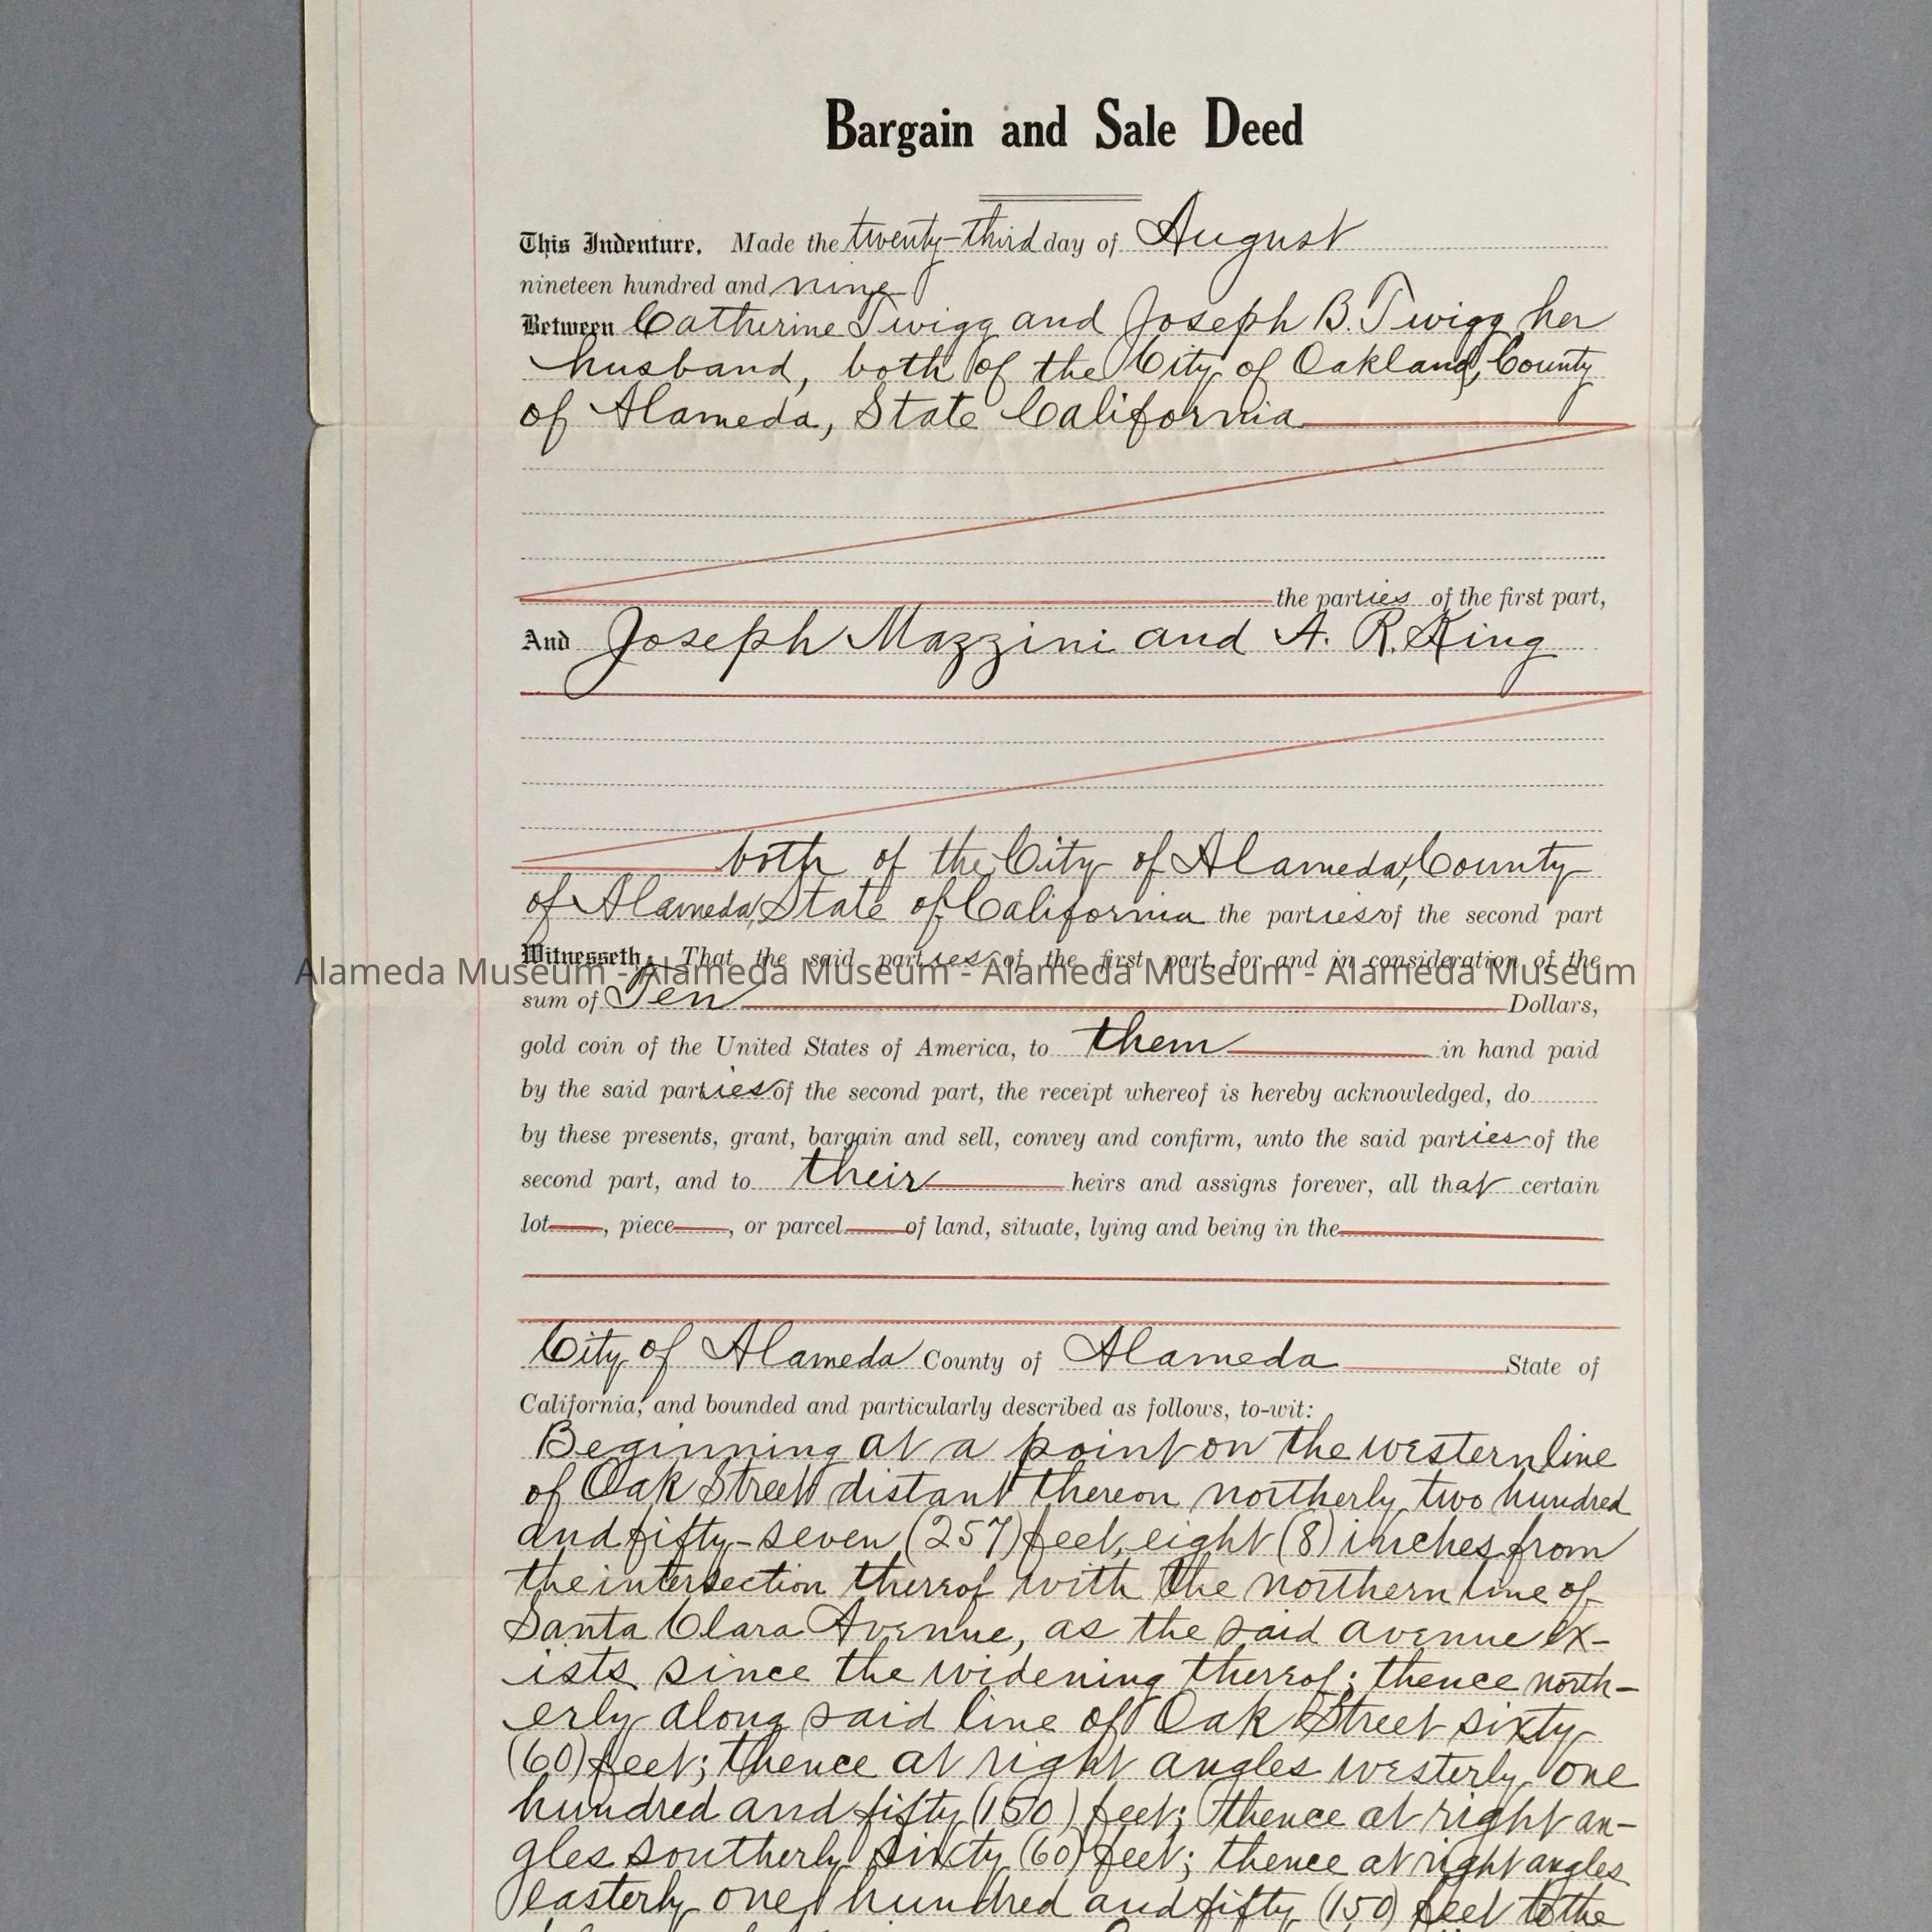 Bargain and Sale Deed
This Indenture, Made the twenty-third day of August
nineteen hundred and nine
Between Catherine Twigg and Joseph B. Twigg, her
husband, both of the City of Oakland, County
of Alameda, State California
the parties of the first part,
And Joseph Mazzini and A. R. King
both of the City of Alameda, County
of Alameda, State of California the parties of the second part
Witnesseth: That the said parties of the first part, for and in consideration of the
Alameda Museum - Alameda Museum - Alameda Museum - Alameda Museum
sum of Ten Dollars,
gold coin of the United States of America, to them in hand paid
by the said parties of the second part, the receipt whereof is hereby acknowledged, do
by these presents, grant, bargain and sell, convey and confirm, unto the said parties of the
second part, and to their heirs and assigns forever, all that certain
lot , piece , or parcel of land, situate, lying and being in the
City of Alameda County of Alameda State of
California, and bounded and particularly described as follows, to-wit:
Beginning at a point on the western line
of Oak Street distant thereon northerly two hundred
and fifty-seven (257) feet, eight (8) inches from
the intersection thereof with the northern line of
Santa Clara Avenue, as the said avenue ex-
ists since the widening thereof; thence north-
erly along said line of Oak Street sixty
(60) feet; thence at right angles westerly one
hundred and fifty (150) feet; thence at right an-
gles southerly sixty (60) feet; thence at right angles
easterly one hundred and fifty (150) feet to the